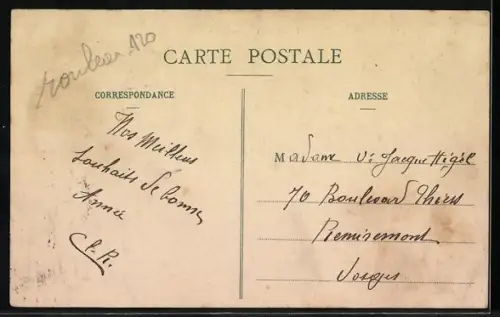 rouleau 120
CARTE POSTALE
CORRESPONDANCE
Nos Meilleurs
souhaits de bonne
Année
C. R.
ADRESSE
Madame Vve Jacques Higel
70 Boulevard Thiers
Remiremont
Vosges